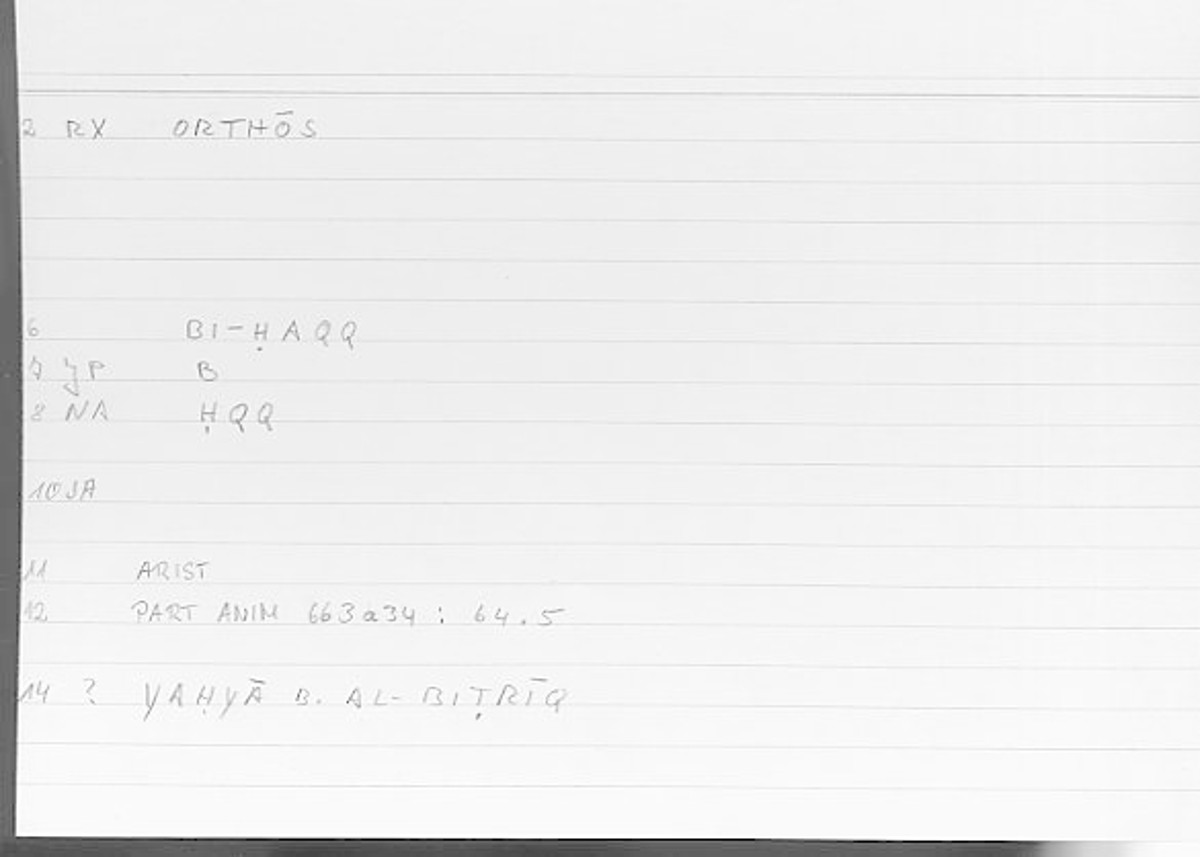 2 RX ORTHŌS
6 BI-ḤAQQ
7 JP B
8 NA ḤQQ
10 JA
11 ARIST
12 PART ANIM 663a34 : 64.5
14 ? YAḤYĀ B. AL-BIṬRĪQ